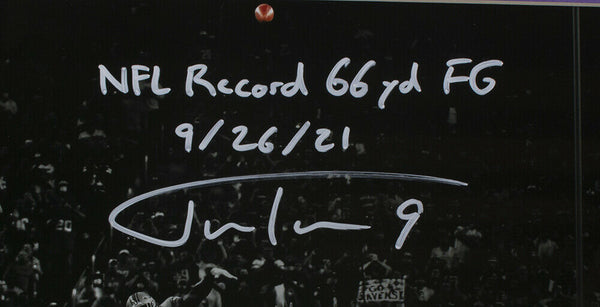 NFL Record 66 yd FG
9/26/21
9
GO
RAVENS!